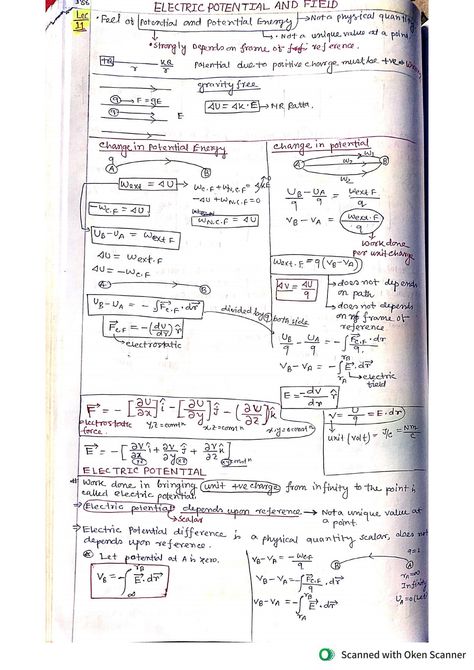 ELECTRIC POTENTIAL AND FIELD
Lec 11
• Feel of Potential and Potential Energy → Not a physical quantity
• Not a unique value at a point.
• Strongly Depends on frame of reference.
Potential due to positive charge must be +ve
gravity free
q → F = qE
E
ΔU = ΔK.E → NR Patta.
Change in Potential Energy
q
A B
Wext = ΔU → Wc.F + WN.C.F = ΔKE
-ΔU + WN.C.F = 0
-Wc.F = ΔU
WN.C.F = ΔU
UB - UA = Wext.F
ΔU = Wext.F
ΔU = -Wc.F
A B
UB - UA = -∫F⃗c.F . dr⃗
divided by q both side
F⃗c.F = -(dU/dr) r̂
electrostatic
change in potential
A B
W1
W2
UB/q - UA/q = Wext F/q
VB - VA = Wext.F/q
Work done per unit charge
Wext.F = q(VB - VA)
ΔV = ΔU/q
→ does not depends on path
→ does not depends on frame of reference
UB/q - UA/q = -∫F⃗c.F . dr⃗/q
VB - VA = -∫ E⃗.dr⃗
rB
rA
electric field
E = -dV/dr r̂
F⃗ = -[∂U/∂x]î - [∂U/∂y]ĵ - (∂U/∂z)k̂
electrostatic force.
y,z = const
x,z = const
x,y = const
V = U/q = E.dr
unit (volt) = J/C = Nm/C
E⃗ = -[∂V/∂x î + ∂V/∂y ĵ + ∂V/∂z k̂]
ELECTRIC POTENTIAL
Work done in bringing unit +ve charge from infinity to the point is
called electric potential.
⇒ Electric potential depends upon reference → Not a unique value at
a point.
scalar
⇒ Electric Potential difference is a physical quantity scalar, does not
depends upon reference.
Let potential at A is zero.
VB = -∫ E⃗.dr⃗
rB
∞
VB - VA = -Wc.F/q
VB - VA = -∫F⃗c.F . dr⃗/q
VB - VA = -∫ E⃗.dr⃗
rB
rA
B A
rA = ∞
Infinity
Scanned with Oken Scanner